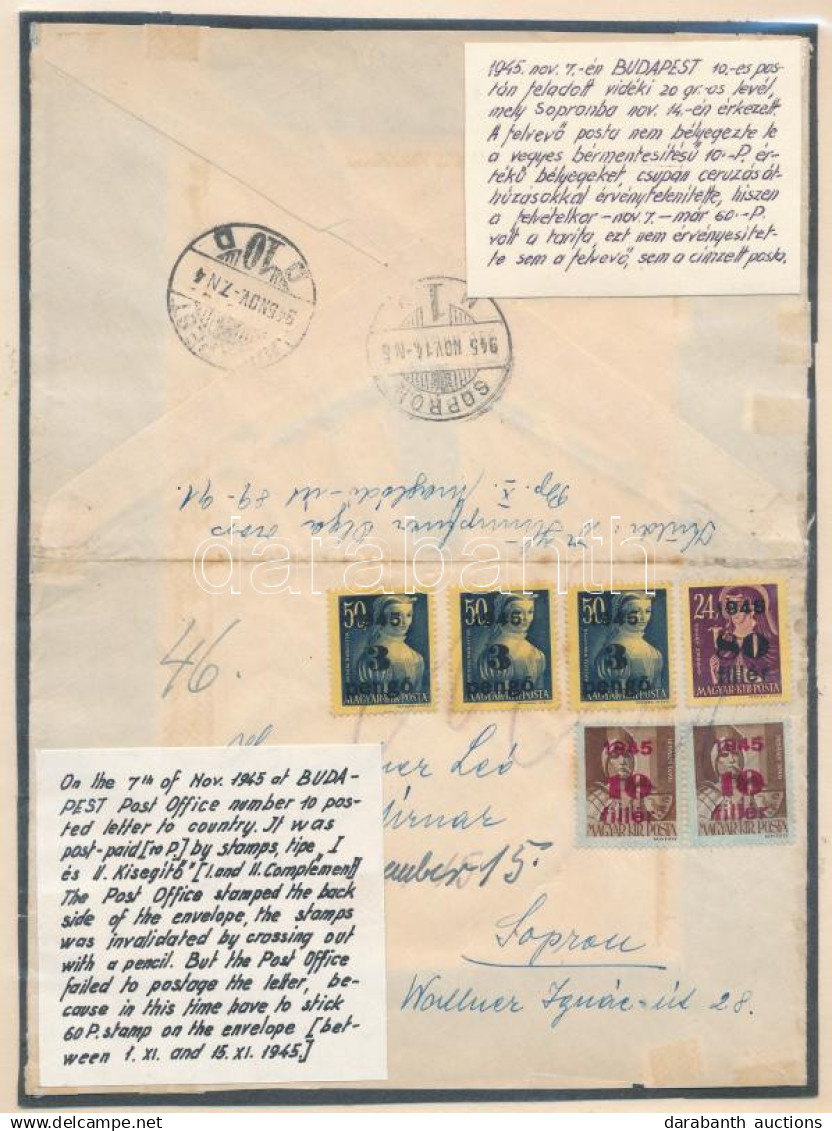 1945. nov. 7.-én BUDAPEST 10.-es pos-
tán feladott vidéki 20 gr.-os levél,
mely Sopronba nov. 14.-én érkezett.
A felvevő posta nem bélyegezte le
a vegyes bérmentesítésű 10.-P. ér-
tékű bélyegeket, csupán ceruzását-
húzásokkal érvénytelenítette, hiszen
a felvételkor - nov. 7. - már 60.-P.
volt a tarifa, ezt nem érvényesítet-
te sem a felvevő, sem a címzett posta.
10
945 NOV.-7.N 4
1
945 NOV.14.-N 8
SOPRON
Bp. X. Maglódi-út 89-91.
Olga
darabanth
50 1945 3 pengő MAGYAR KIR. POSTA
50 1945 3 pengő MAGYAR KIR. POSTA
50 1945 3 pengő MAGYAR KIR. POSTA
24 1945 80 fillér MAGYAR KIR. POSTA
1945 10 fillér MAGYAR KIR. POSTA
1945 10 fillér MAGYAR KIR. POSTA
Leó
15.
Sopron
Wallner Ignác-út 28.
On the 7th of Nov. 1945 at BUDA-
PEST Post Office number 10 pos-
ted letter to country. It was
post-paid [10 P.] by stamps, tipe „I
és II. Kisegítő" [I. and II. Complement]
The Post Office stamped the back
side of the envelope, the stamps
was invalidated by crossing out
with a pencil. But the Post Office
failed to postage the letter, be-
cause in this time have to stick
60 P. stamp on the envelope [bet-
ween 1. XI. and 15. XI. 1945.]
darabanth auctions